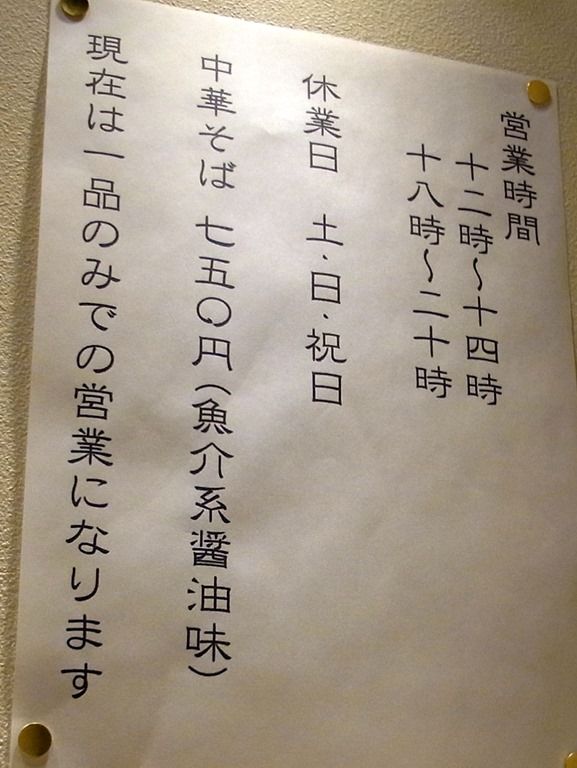 営業時間
十二時〜十四時
十八時〜二十時
休業日 土・日・祝日
中華そば 七五〇円(魚介系醤油味)
現在は一品のみでの営業になります